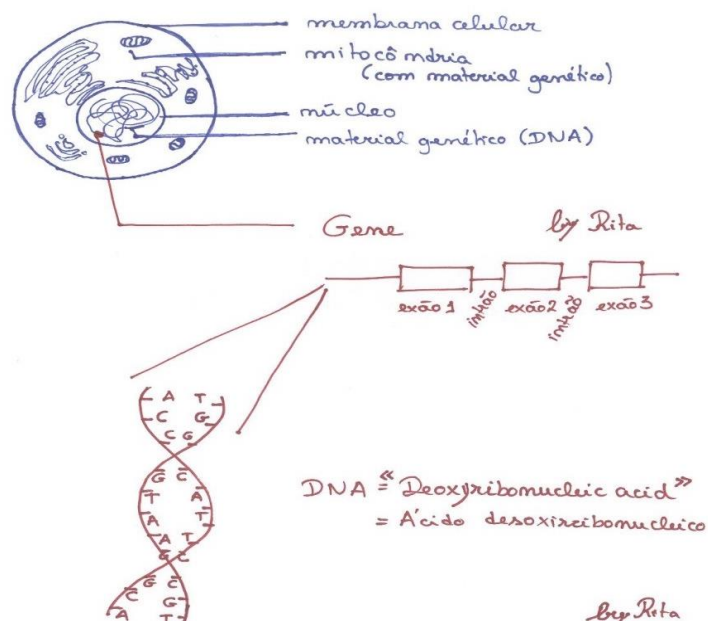 membrana celular
mitocôndria
(com material genético)
núcleo
material genético (DNA)
Gene
by Rita
exão 1
intrão
exão 2
intrão
exão 3
A T
C G
C G
G C
T A
A T
A T
G C
G C
C G
A T
DNA = "Deoxyribonucleic acid"
= Ácido desoxirribonucleico
by Rita